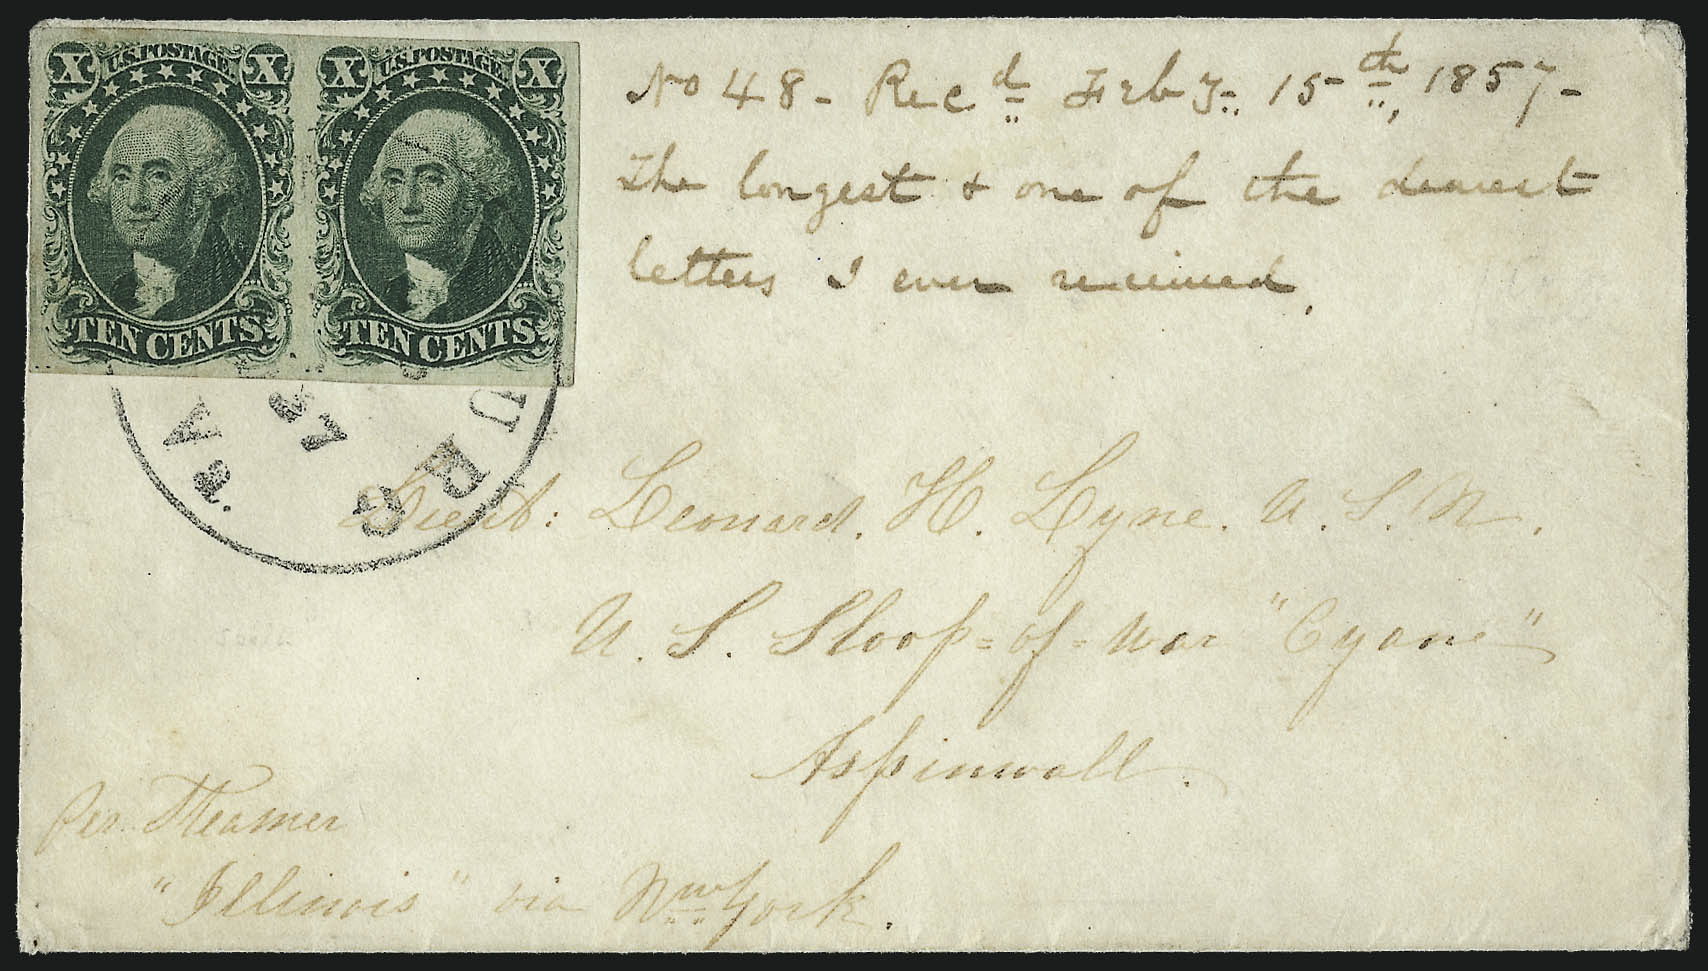 X U.S. POSTAGE. X X U.S. POSTAGE. X
TEN CENTS. TEN CENTS.
No 48 - Recd Feby. 15th, 1857 -
The longest & one of the dearest
letters I ever received.
URG
VA.
Lieut: Leonard. H. Lyne. U. S. N.
U. S. Sloop=of=War "Cyane"
Aspinwall.
Per. Steamer
"Illinois" via New York.